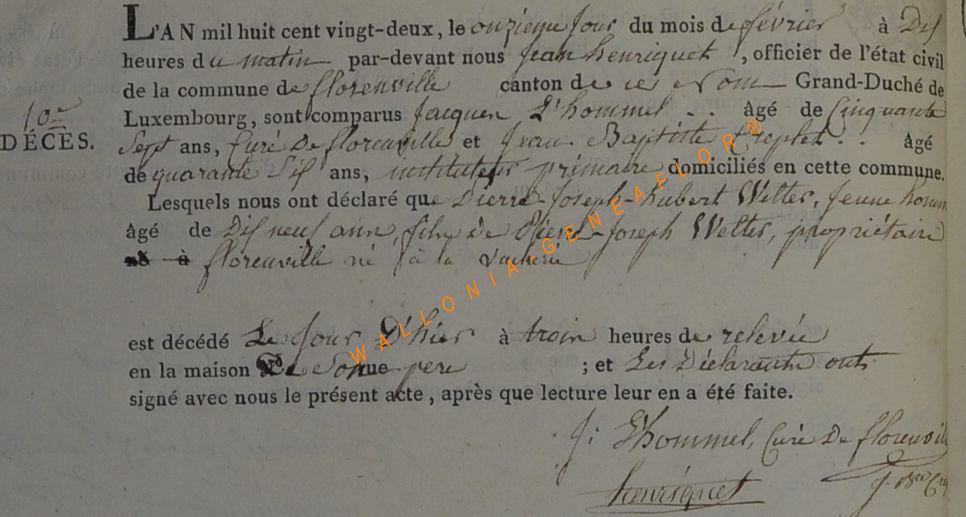 L'AN mil huit cent vingt-deux, le onzieme jour du mois de février à Dix
heures du matin par-devant nous Jean henriquet, officier de l'état civil
de la commune de florenville canton de ce Nom Grand-Duché de
Luxembourg, sont comparus Jacques L'hommel .. âgé de Cinquante
10e
DÉCÈS.
Sept ans, Curé de florenville et Jean Baptiste .. âgé
de quarante Six ans, instituteur primaire domiciliés en cette commune.
Lesquels nous ont déclaré que Pierre-Joseph-hubert Welter, Jeune homme
âgé de Dix neuf ans, fils de Pierre-Joseph Welter, propriétaire
à florenville né à la Vacherie
est décédé Le Jour D'hier à trois heures de relevée
en la maison de Son pere ; et Les Déclarants ont
signé avec nous le présent acte, après que lecture leur en a été faite.
J: L'hommel, Curé De florenvill
henriquet J. Bte
WALLONIA-GENEAFLOR®